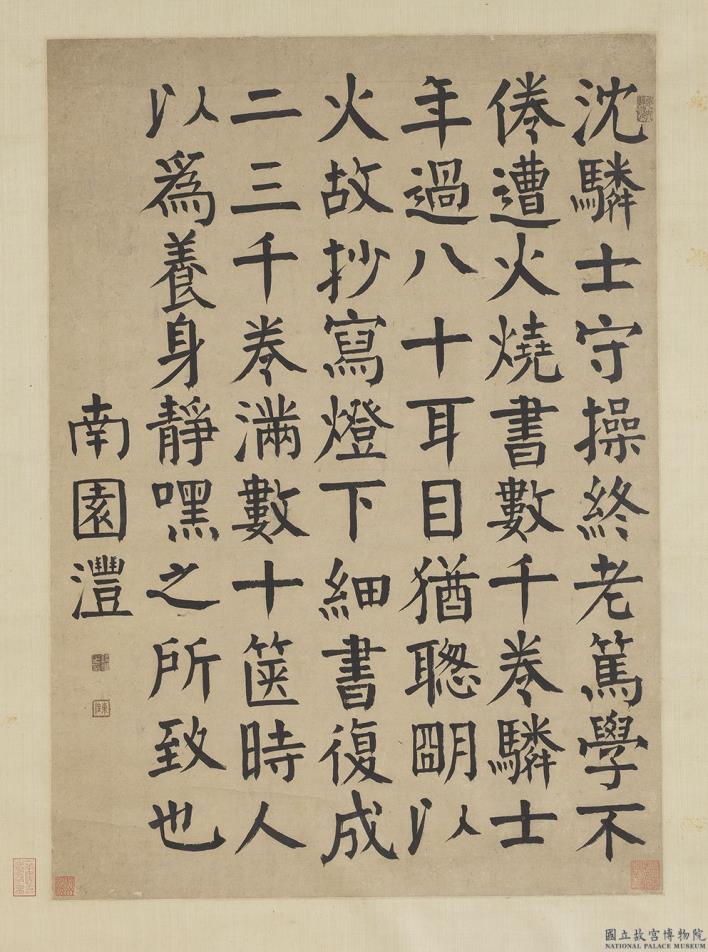 沈驎士守操終老篤學不
倦遭火燒書數千卷驎士
年過八十耳目猶聰明以
火故抄寫燈下細書復成
二三千卷滿數十篋時人
以為養身靜嘿之所致也
南園灃
國立故宮博物院
NATIONAL PALACE MUSEUM